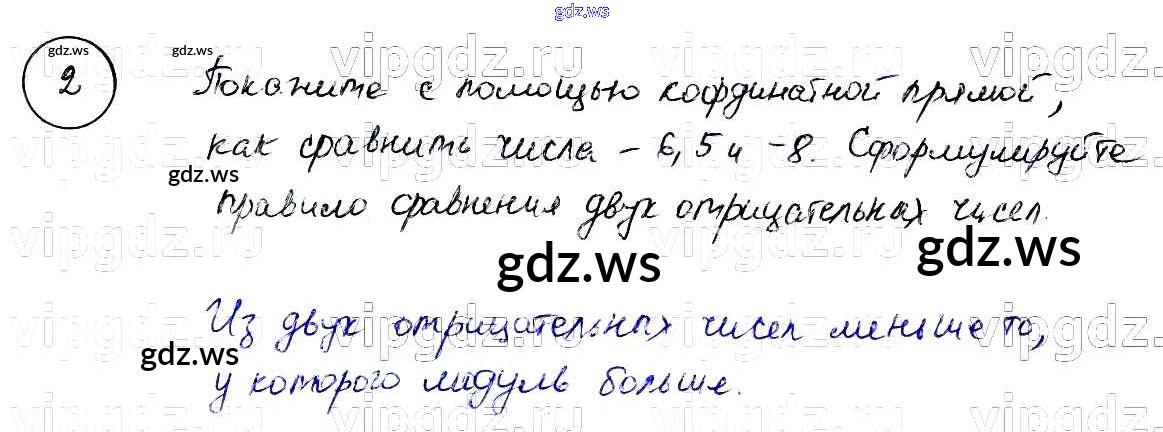 gdz.ws
gdz.ws gdz.ws
vipgdz.ru vipgdz.ru vipgdz.ru vipgdz
2 Покажите с помощью координатной прямой,
как сравнить числа – 6,5 и –8. Сформулируйте
gdz.ws
правило сравнения двух отрицательных чисел.
gdz.ws gdz.ws
Из двух отрицательных чисел меньше то,
gdz.ws
у которого модуль больше.